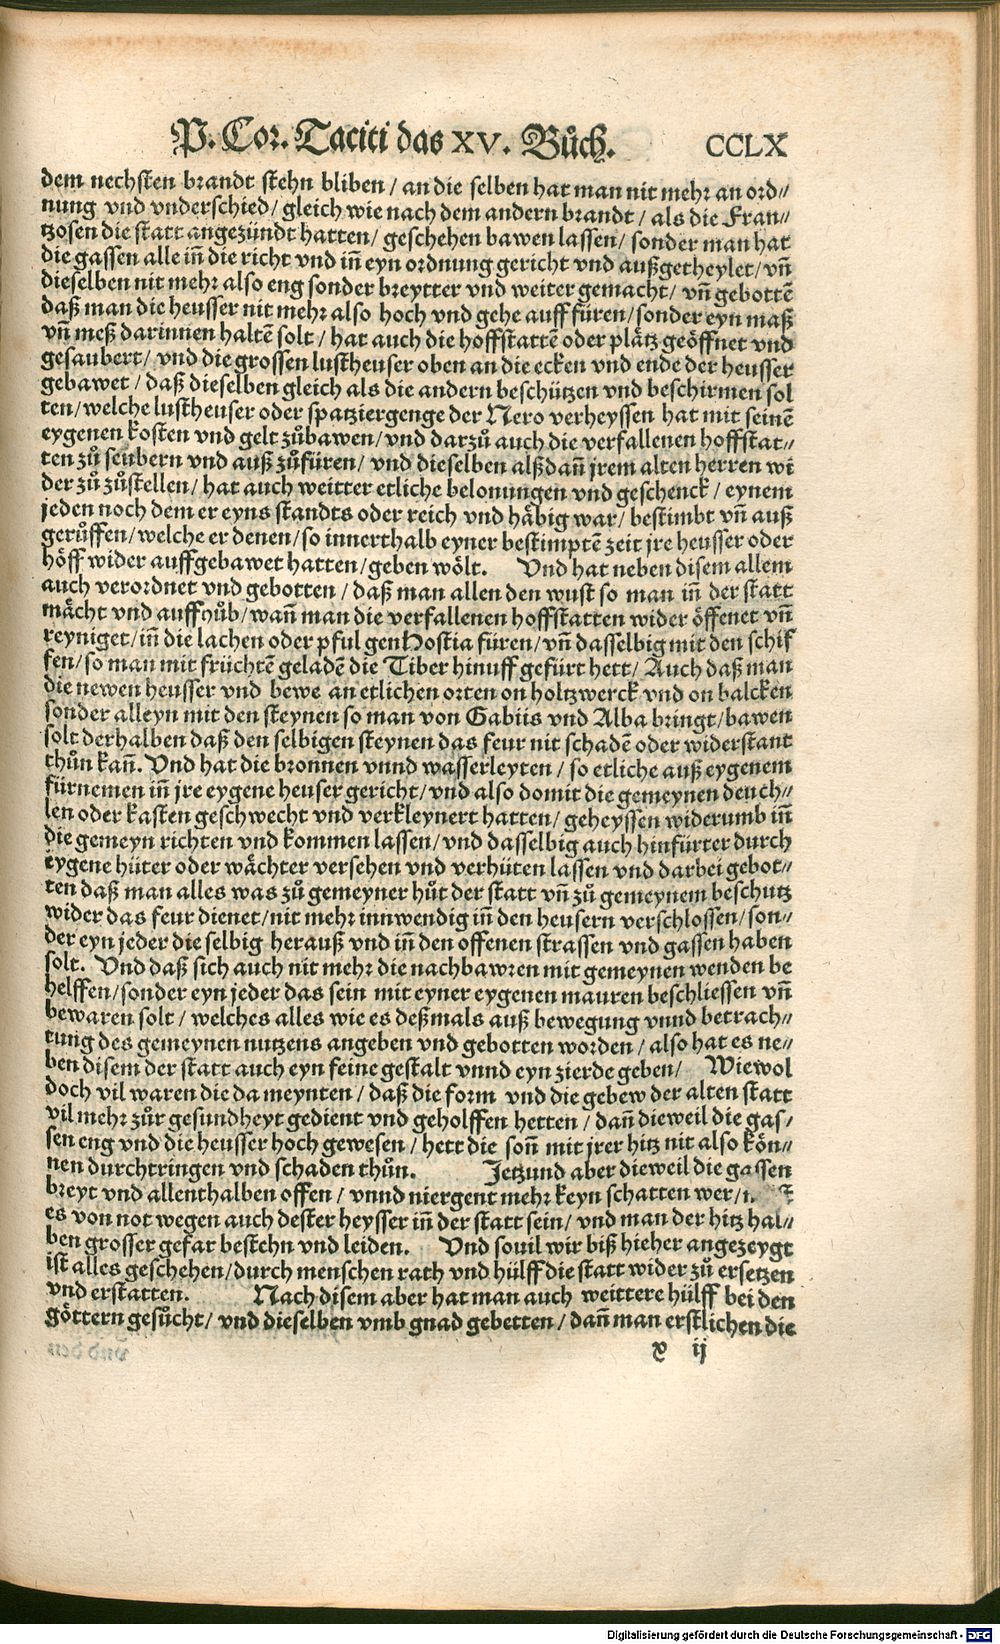 P. Cor. Taciti das XV. Bůch. CCLX
dem nechsten brandt stehn bliben / an die selben hat man nit mehr an ord⸗
nung vnd vnderschied / gleich wie nach dem andern brandt / als die Fran⸗
tzosen die statt angezündt hatten / geschehen bawen lassen / sonder man hat
die gassen alle iñ die richt vnd iñ eyn ordnung gericht vnd außgetheylet / vñ
dieselben nit mehr also eng sonder breytter vnd weiter gemacht / vñ gebottē
daß man die heusser nit mehr also hoch vnd gehe auff füren / sonder eyn maß
vñ meß darinnen haltē solt / hat auch die hoffstattē oder plätz geöffnet vnd
gesaubert / vnd die grossen lustheuser oben an die ecken vnd ende der heusser
gebawet / daß dieselben gleich als die andern beschützen vnd beschirmen sol
ten / welche lustheuser oder spatziergenge der Nero verheyssen hat mit seinē
eygenen kosten vnd gelt zůbawen / vnd darzů auch die verfallenen hoffstat⸗
ten zů seubern vnd auß zůfüren / vnd dieselben alßdañ jrem alten herren wi
der zů zůstellen / hat auch weitter etliche belonungen vnd geschenck / eynem
jeden noch dem er eyns standts oder reich vnd häbig war / bestimbt vñ auß
gerůffen / welche er denen / so innerthalb eyner bestimptē zeit jre heusser oder
höff wider auffgebawet hatten / geben wölt. Vnd hat neben disem allem
auch verordnet vnd gebotten / daß man allen den wust so man iñ der statt
mächt vnd auffhůb / wañ man die verfallenen hoffstatten wider öffenet vñ
reyniget / iñ die lachen oder pful gen Hostia füren / vñ dasselbig mit den schif
fen / so man mit früchtē geladē die Tiber hinuff gefürt hett / Auch daß man
die newen heusser vnd bewe an etlichen orten on holtzwerck vnd on balcken
sonder alleyn mit den steynen so man von Gabiis vnd Alba bringt / bawen
solt derhalben daß den selbigen steynen das feur nit schadē oder widerstant
thůn kañ. Vnd hat die bronnen vnnd wasserleyten / so etliche auß eygenem
fürnemen iñ jre eygene heuser gericht / vnd also domit die gemeynen deuch⸗
len oder kasten geschwecht vnd verkleynert hatten / geheyssen widerumb iñ
die gemeyn richten vnd kommen lassen / vnd dasselbig auch hinfürter durch
eygene hüter oder wächter versehen vnd verhüten lassen vnd darbei gebot⸗
ten daß man alles was zů gemeyner hůt der statt vñ zů gemeynem beschutz
wider das feur dienet / nit mehr innwendig iñ den heusern verschlossen / son⸗
der eyn jeder die selbig herauß vnd iñ den offenen strassen vnd gassen haben
solt. Vnd daß sich auch nit mehr die nachbawren mit gemeynen wenden be
helffen / sonder eyn jeder das sein mit eyner eygenen mauren beschliessen vñ
bewaren solt / welches alles wie es deßmals auß bewegung vnnd betrach⸗
tung des gemeynen nutzens angeben vnd gebotten worden / also hat es ne⸗
ben disem der statt auch eyn feine gestalt vnnd eyn zierde geben / Wiewol
doch vil waren die da meynten / daß die form vnd die gebew der alten statt
vil mehr zůr gesundheyt gedient vnd geholffen hetten / dañ dieweil die gas⸗
sen eng vnd die heusser hoch gewesen / hett die soñ mit jrer hitz nit also kön⸗
nen durchtringen vnd schaden thůn. Jetzund aber dieweil die gassen
breyt vnd allenthalben offen / vnnd niergent mehr keyn schatten wer /
es von not wegen auch dester heysser iñ der statt sein / vnd man der hitz hal⸗
ben grosser gefar bestehn vnd leiden. Vnd souil wir biß hieher angezeygt
ist alles geschehen / durch menschen rath vnd hülff die statt wider zů ersetzen
vnd erstatten. Nach disem aber hat man auch weittere hülff bei den
göttern gesůcht / vnd dieselben vmb gnad gebetten / dañ man erstlichen die
x ij
Digitalisierung gefördert durch die Deutsche Forschungsgemeinschaft - DFG